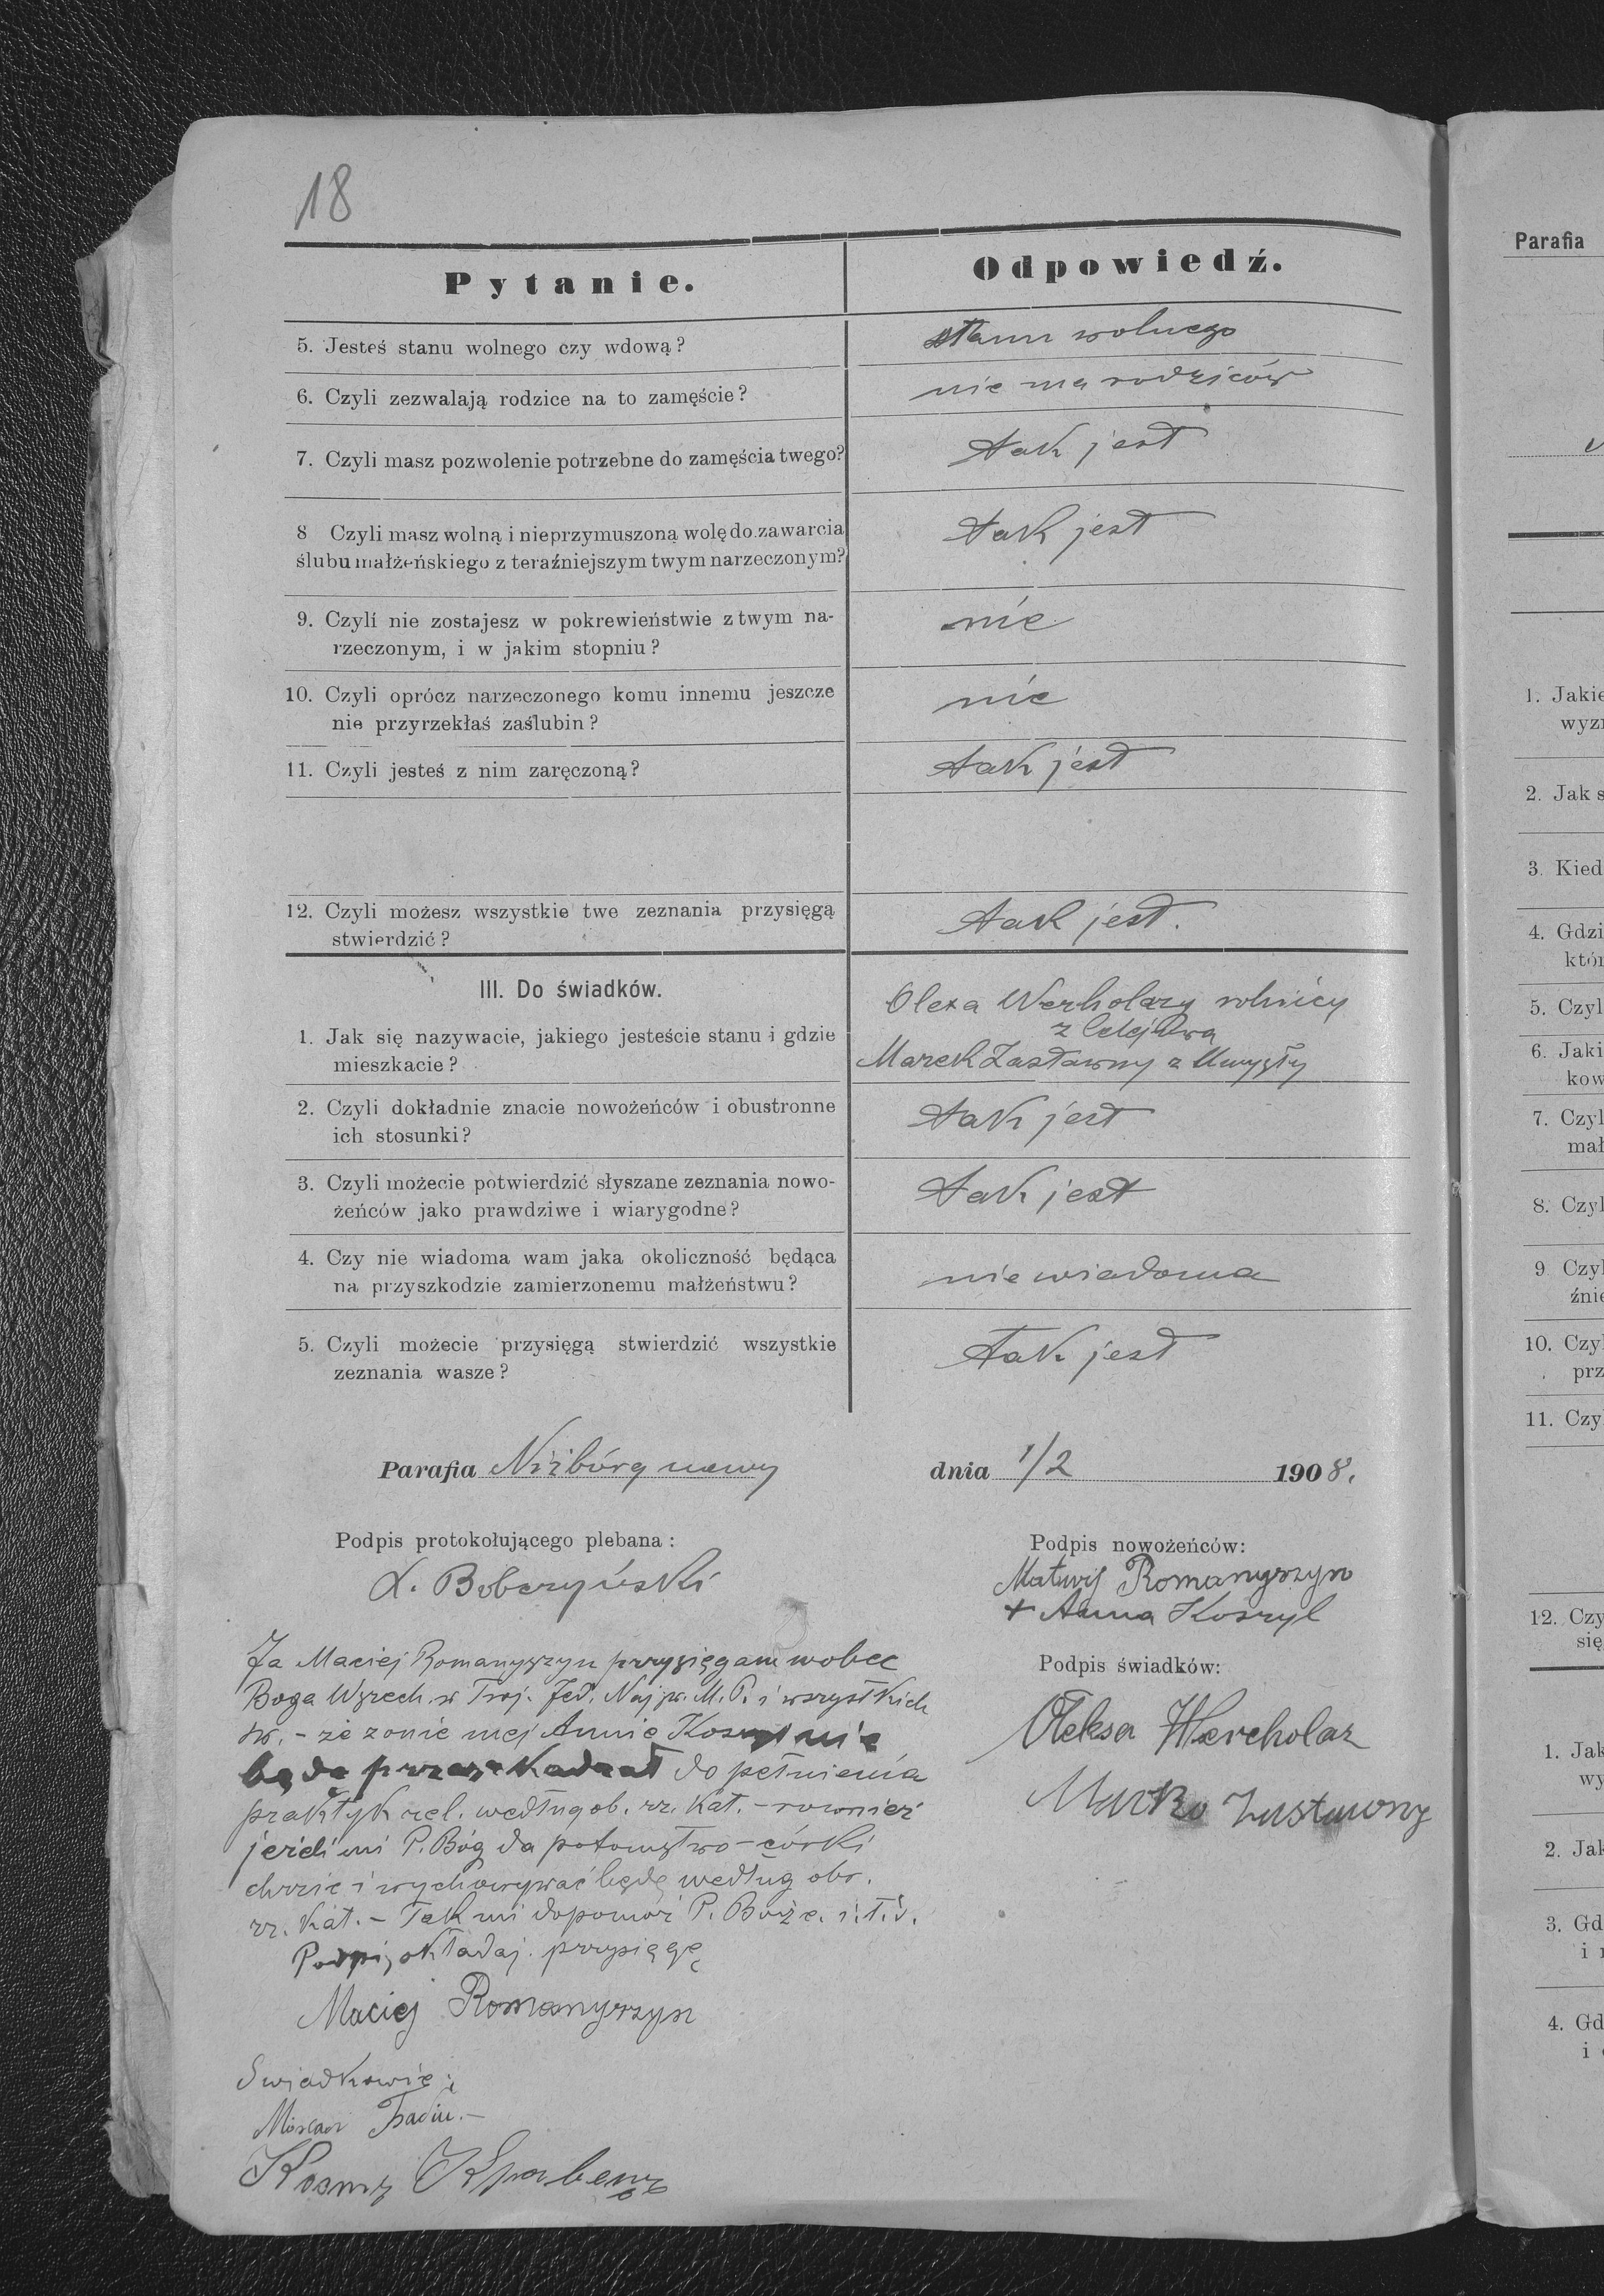 18
Pytanie.
Odpowiedź.
5. Jesteś stanu wolnego czy wdową?
stanu wolnego
6. Czyli zezwalają rodzice na to zamęście?
nie ma rodziców
7. Czyli masz pozwolenie potrzebne do zamęścia twego?
tak jest
8 Czyli masz wolną i nieprzymuszoną wolę do zawarcia
ślubu małżeńskiego z teraźniejszym twym narzeczonym?
tak jest
9. Czyli nie zostajesz w pokrewieństwie z twym na-
rzeczonym, i w jakim stopniu?
nie
10. Czyli oprócz narzeczonego komu innemu jeszcze
nie przyrzekłaś zaślubin?
nie
11. Czyli jesteś z nim zaręczoną?
tak jest
12. Czyli możesz wszystkie twe zeznania przysięgą
stwierdzić?
tak jest.
III. Do świadków.
1. Jak się nazywacie, jakiego jesteście stanu i gdzie
mieszkacie?
Olexa Werholazy rolnicy
z
Marek Zastawny z
2. Czyli dokładnie znacie nowożeńców i obustronne
ich stosunki?
tak jest
3. Czyli możecie potwierdzić słyszane zeznania nowo-
żeńców jako prawdziwe i wiarygodne?
tak jest
4. Czy nie wiadoma wam jaka okoliczność będąca
na przyszkodzie zamierzonemu małżeństwu?
nie wiadoma
5. Czyli możecie przysięgą stwierdzić wszystkie
zeznania wasze?
Tak jest
Parafia Niżbórg nowy
dnia 1/2 1908.
Podpis protokołującego plebana:
X. Boberzyński
Podpis nowożeńców:
Matwij Romanyszyn
+ Anna Koszyl
Ja Maciej Romanyszyn przysięgam wobec
Boga Wszech. w Troj. Jed. Najśw. M. P. i wszystkich
św. - że żonie mej Annie Koszyl nie
będę przeszkadzał do pełnienia
praktyk rel. według ob. rz. kat. - rownież
jeżeli mi P. Bóg da potomstwo - córki
chrzcić i wychowywać będę według obr.
rz. kat. - Tak mi dopomóż P. Boże. i. t. d.
Podpis składaj. przysięgę
Maciej Romanyszyn
Podpis świadków:
Oleksa Wercholaz
Marko Zastawny
Swiadkowie:
Kosmy
Parafia
1. Jakie
wyzn
2. Jak s
3. Kied
4. Gdzi
któr
5. Czyl
6. Jaki
kow
7. Czyl
mał
8. Czyl
9 Czyl
źnie
10. Czyl
prz
11. Czy
12. Czy
się
1. Jak
wy
2. Jak
3. Gd
i
4. Gd
i